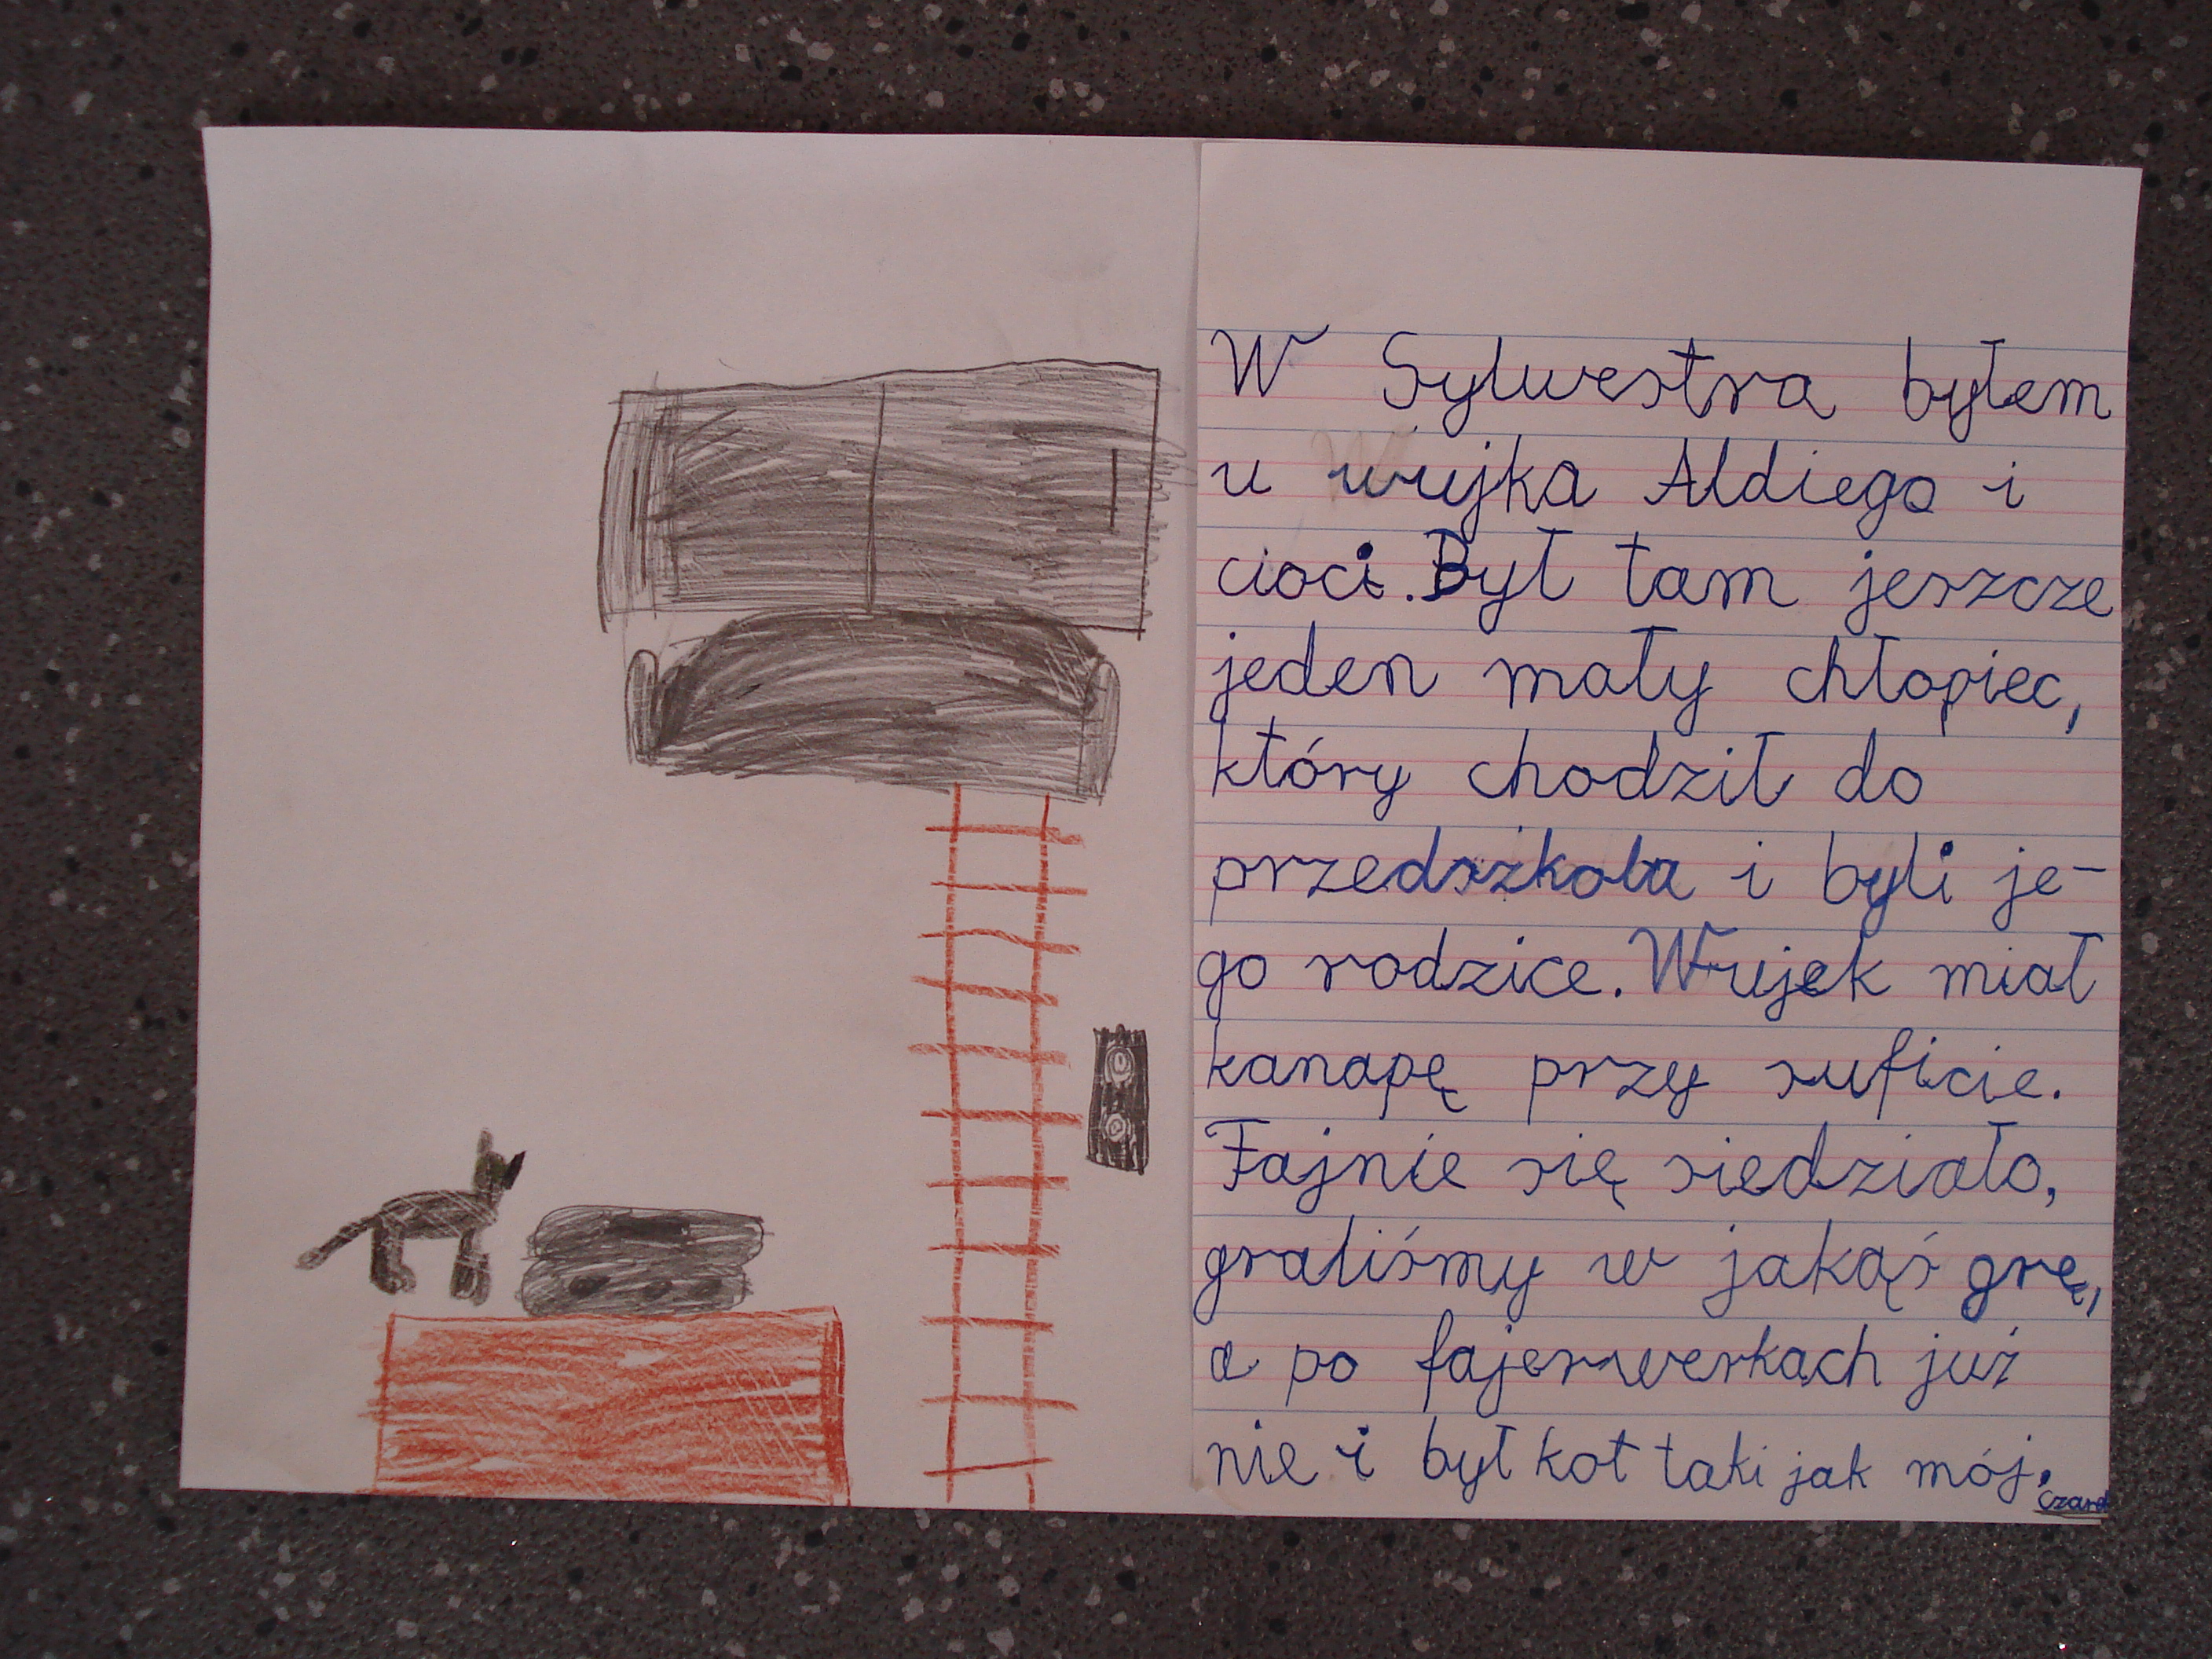 W Sylwestra byłem
u wujka Aldiego i
cioci. Był tam jeszcze
jeden mały chłopiec,
który chodził do
przedszkola i byli je-
go rodzice. Wujek miał
kanapę przy suficie.
Fajnie się siedziało,
graliśmy w jakąś grę,
a po fajerwerkach już
nie i był kot taki jak mój.